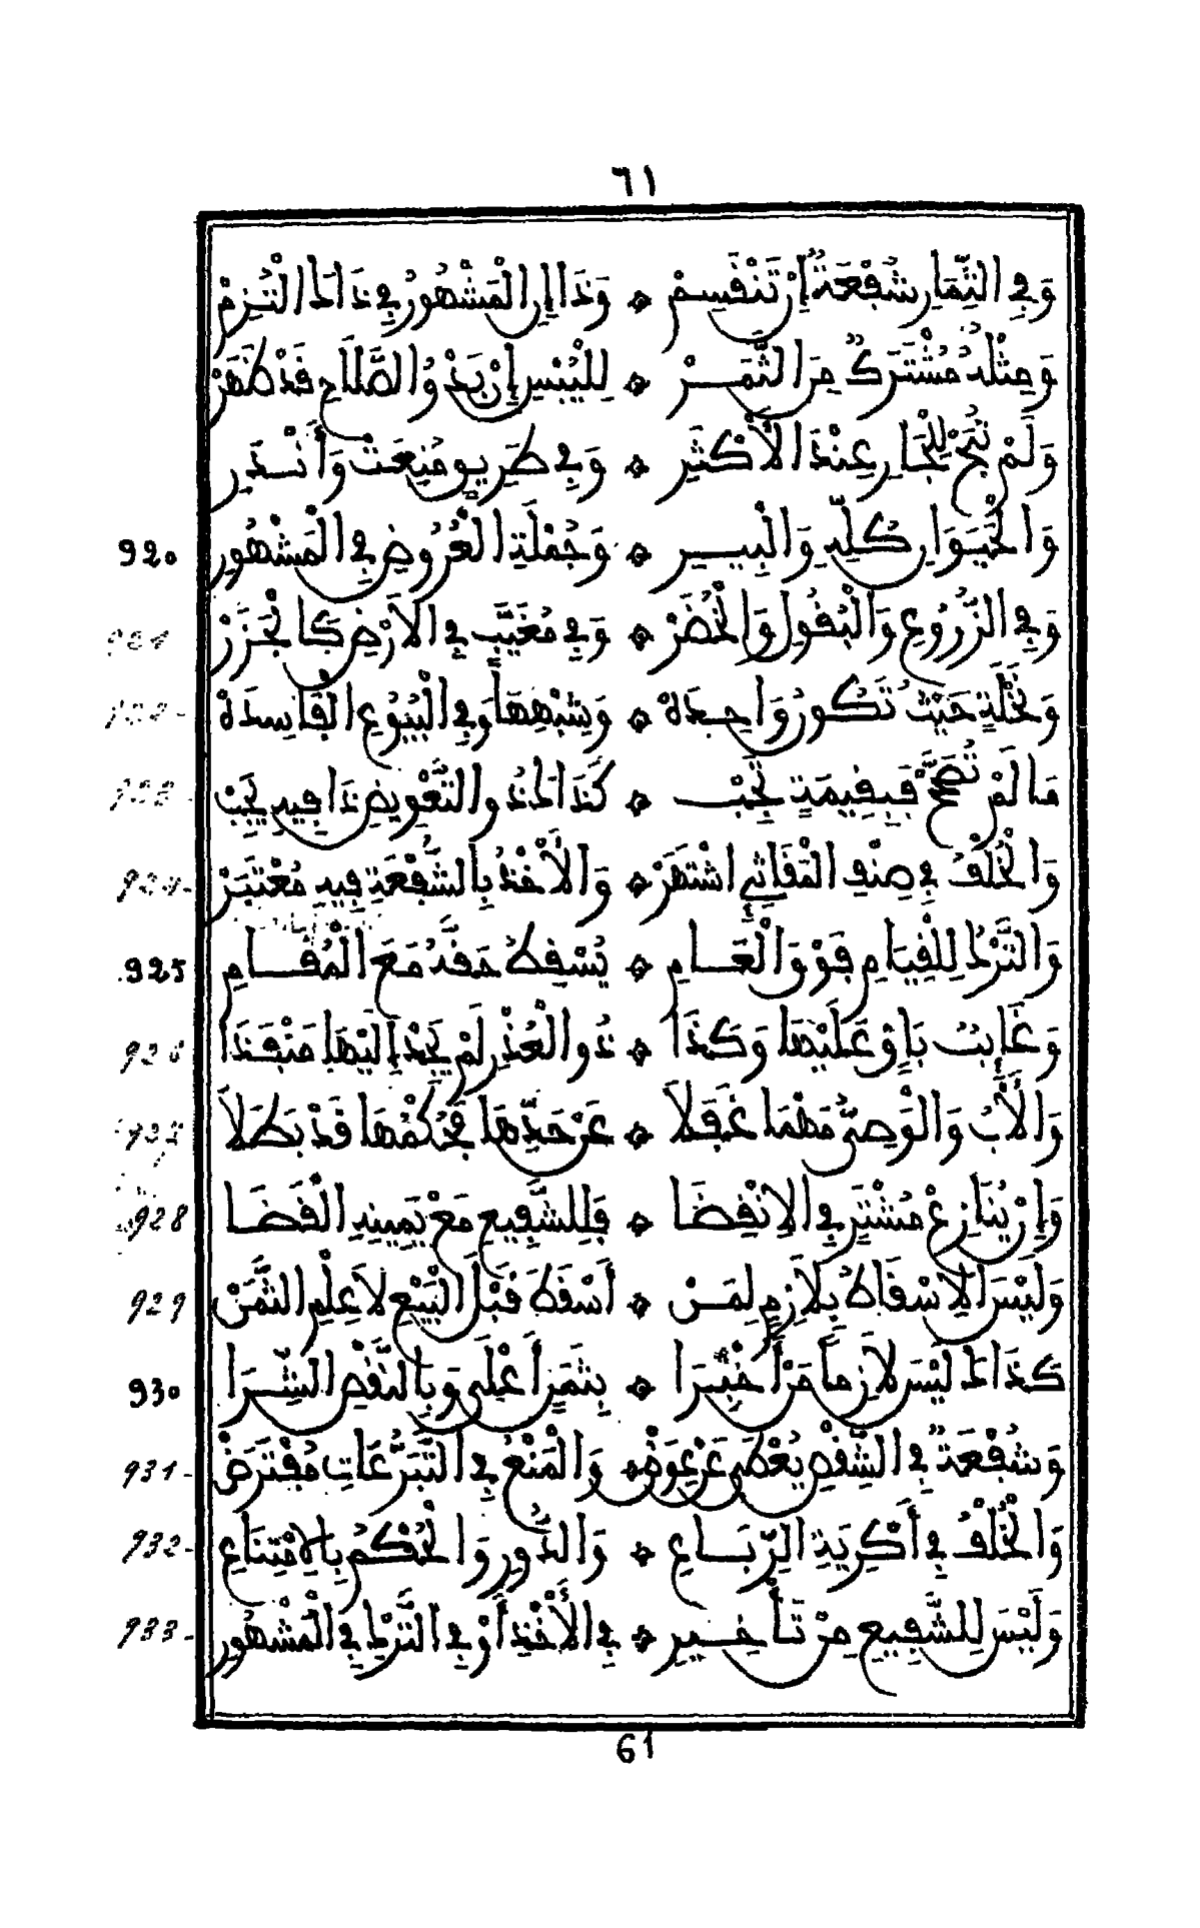 ٦١
وَفِي الثِّمَارِ شُفْعَةٌ إِنْ تَنْقَسِمْ ۞ وَذَا إِنِ الْمَشْهُورُ فِي ذَاكَ الْتُزِمْ
وَمِثْلُهُ مُشْتَرَكٌ مِنَ الثَّمَرْ ۞ لِلْيُبْسِ إِنْ بَدْوُ الصَّلَاحِ قَدْ ظَهَرْ
وَلَمْ تُبَحْ لِلْجَارِ عِنْدَ الْأَكْثَرِ ۞ وَفِي طَرِيقٍ مُنِعَتْ وَأَنْدَرِ
وَالْحَيَوَانِ كُلِّهِ وَالْبِيرِ ۞ وَجُمْلَةِ الْعُرُوضِ فِي الْمَشْهُورِ
920
وَفِي الزُّرُوعِ وَالْبُقُولِ وَالْخُضَرْ ۞ وَفِي مُغَيَّبٍ فِي الْأَرْضِ كَالْجَزَرْ
921
وَنَخْلَةٍ حَيْثُ تَكُونُ وَاحِدَهْ ۞ وَشِبْهِهَا وَفِي الْبُيُوعِ الْفَاسِدَهْ
مَا لَمْ تُصَحَّحْ فَبِقِيمَةٍ تَجِبْ ۞ كَذَاكَ ذُو التَّعْوِيضِ ذَا فِيهِ يَجِبْ
وَالْخُلْفُ فِي صِنْفِ الْمَقَاثِي اشْتَهَرْ ۞ وَالْأَخْذُ بِالشُّفْعَةِ فِيهِ مُعْتَبَرْ
924
وَالتَّرْكُ لِلْقِيَامِ فَوْقَ الْعَامِ ۞ يُسْقِطُ حَقَّهُ مَعَ الْمُقَامِ
925
وَغَائِبٌ بَاقٍ عَلَيْهَا وَكَذَا ۞ ذُو الْعُذْرِ لَمْ يَجِدْ إِلَيْهَا مَنْفَذَا
926
وَالْأَبُ وَالْوَصِيُّ مَهْمَا غَفَلَا ۞ عَنْ حَدِّهَا فَحُكْمُهَا قَدْ بَطَلَا
927
وَإِنْ يُنَازِعْ مُشْتَرٍ فِي الِانْقِضَا ۞ فَلِلشَّفِيعِ مَعْ يَمِينِهِ الْقَضَا
928
وَلَيْسَ الِاسْقَاطُ بِلَازِمٍ لِمَنْ ۞ أَسْقَطَ قَبْلَ الْبَيْعِ لَا عِلْمِ الثَّمَنْ
929
كَذَاكَ لَيْسَ لَازِمًا مَنْ أُخْبِرَا ۞ بِثَمَنٍ أَعْلَى وَبِالنَّقْصِ الشِّرَا
930
وَشُفْعَةٌ فِي الشِّقْصِ يُعْطَى عَنْ عِوَضْ ۞ وَالْمَنْعُ فِي التَّبَرُّعَاتِ مُفْتَرَضْ
931
وَالْخُلْفُ فِي أَكْرِيَةِ الرِّبَاعِ ۞ وَالدُّورِ وَالْحُكْمُ بِالِامْتِنَاعِ
932
وَلَيْسَ لِلشَّفِيعِ مِنْ تَأْخِيرِ ۞ فِي الْأَخْذِ أَوْ فِي التَّرْكِ فِي الْمَشْهُورِ
933
61